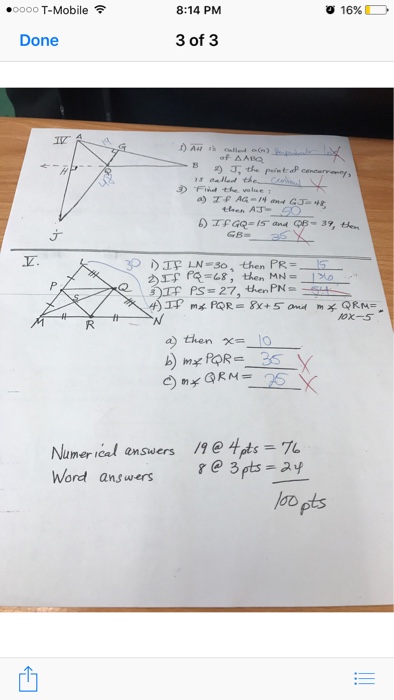 T-Mobile 8:14 PM 16%
Done 3 of 3
IV
A
G
B
H
Q
J
1) AH is called a(n)
of △ABQ
2) J, the point of concurrency,
is called the
3) Find the value:
a) If AG=14 and GJ=48,
then AJ= 50
b) If GQ=15 and QB=39, then
GB= 35 X
V.
L
P
Q
S
M
R
N
30
1) If LN=30, then PR= 15
2) If PQ=68, then MN= 136
3) If PS=27, then PN= 54
4) If m∡ PQR= 8x+5 and m∡ QRM=
10x-5
a) then x= 10
b) m∡ PQR= 35 X
c) m∡ QRM= 35 X
Numerical answers 19 @ 4pts = 76
Word answers 8 @ 3pts = 24
100 pts